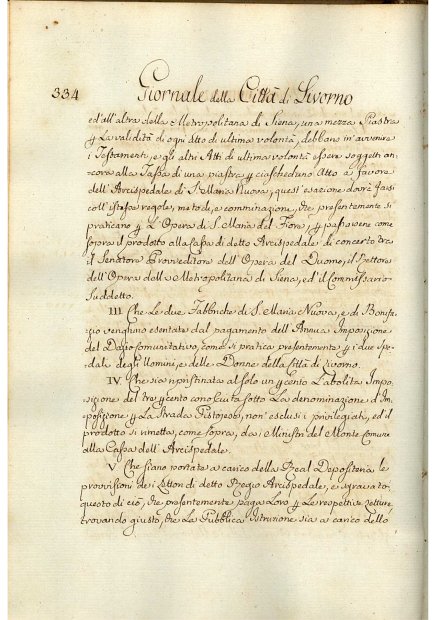 334 Giornale della Città di Livorno
ed' all' altra della Metropolitana di Siena, una mezza Piastra
y La validità di ogni Atto di ultima volontà, debbano in' avvenire
i Testamenti, e gli altri Atti di ultima volontà essere soggetti an-
cora alla Tassa di una piastra y ciascheduno Atto à favore
dell' Arcispedale di S. Maria Nuova, quest' esazione dovrà farsi
coll' istesse regole, metodi, e comminazione, che presentemente si
praticano y L' Opera di S. Maria del Fiore, y passarsene come
sopra il prodotto alla Cassa di detto Arcispedale di concerto tra
il Senatore Provveditore dell' Opera del Duomo, il Rettore
dell' Opera della Metropolitana di Siena, ed' il Commissario
Suddetto.
III. Che Le due Fabbriche di S. Maria Nuova, e di Bonifa-
zio venghino esentate dal pagamento dell' Annua Imposizione
del Dazio Comunitativo, come si pratica presentemente y i due Spe-
dali degli Uomini, e delle Donne della Città di Livorno.
IV. Che sia ripristinata al solo un' y cento L' abolita Impo-
sizione del tre y cento conosciuta sotto La denominazione d' Im-
posizione y La Strada Pistojese, non' esclusi i privilegiati, ed il
prodotto si rimetta, come sopra, da i Ministri del Monte Comune
alla Cassa dell' Arcispedale.
V. Che siano portate a carico della Real Depositeria le
provvisioni dei Lettori di detto Regio Arcispedale, e sgravato
questo di ciò, che presentemente paga Loro y Le respettive Letture
trovando giusto, che La Pubblica Istruzione sia a carico dello